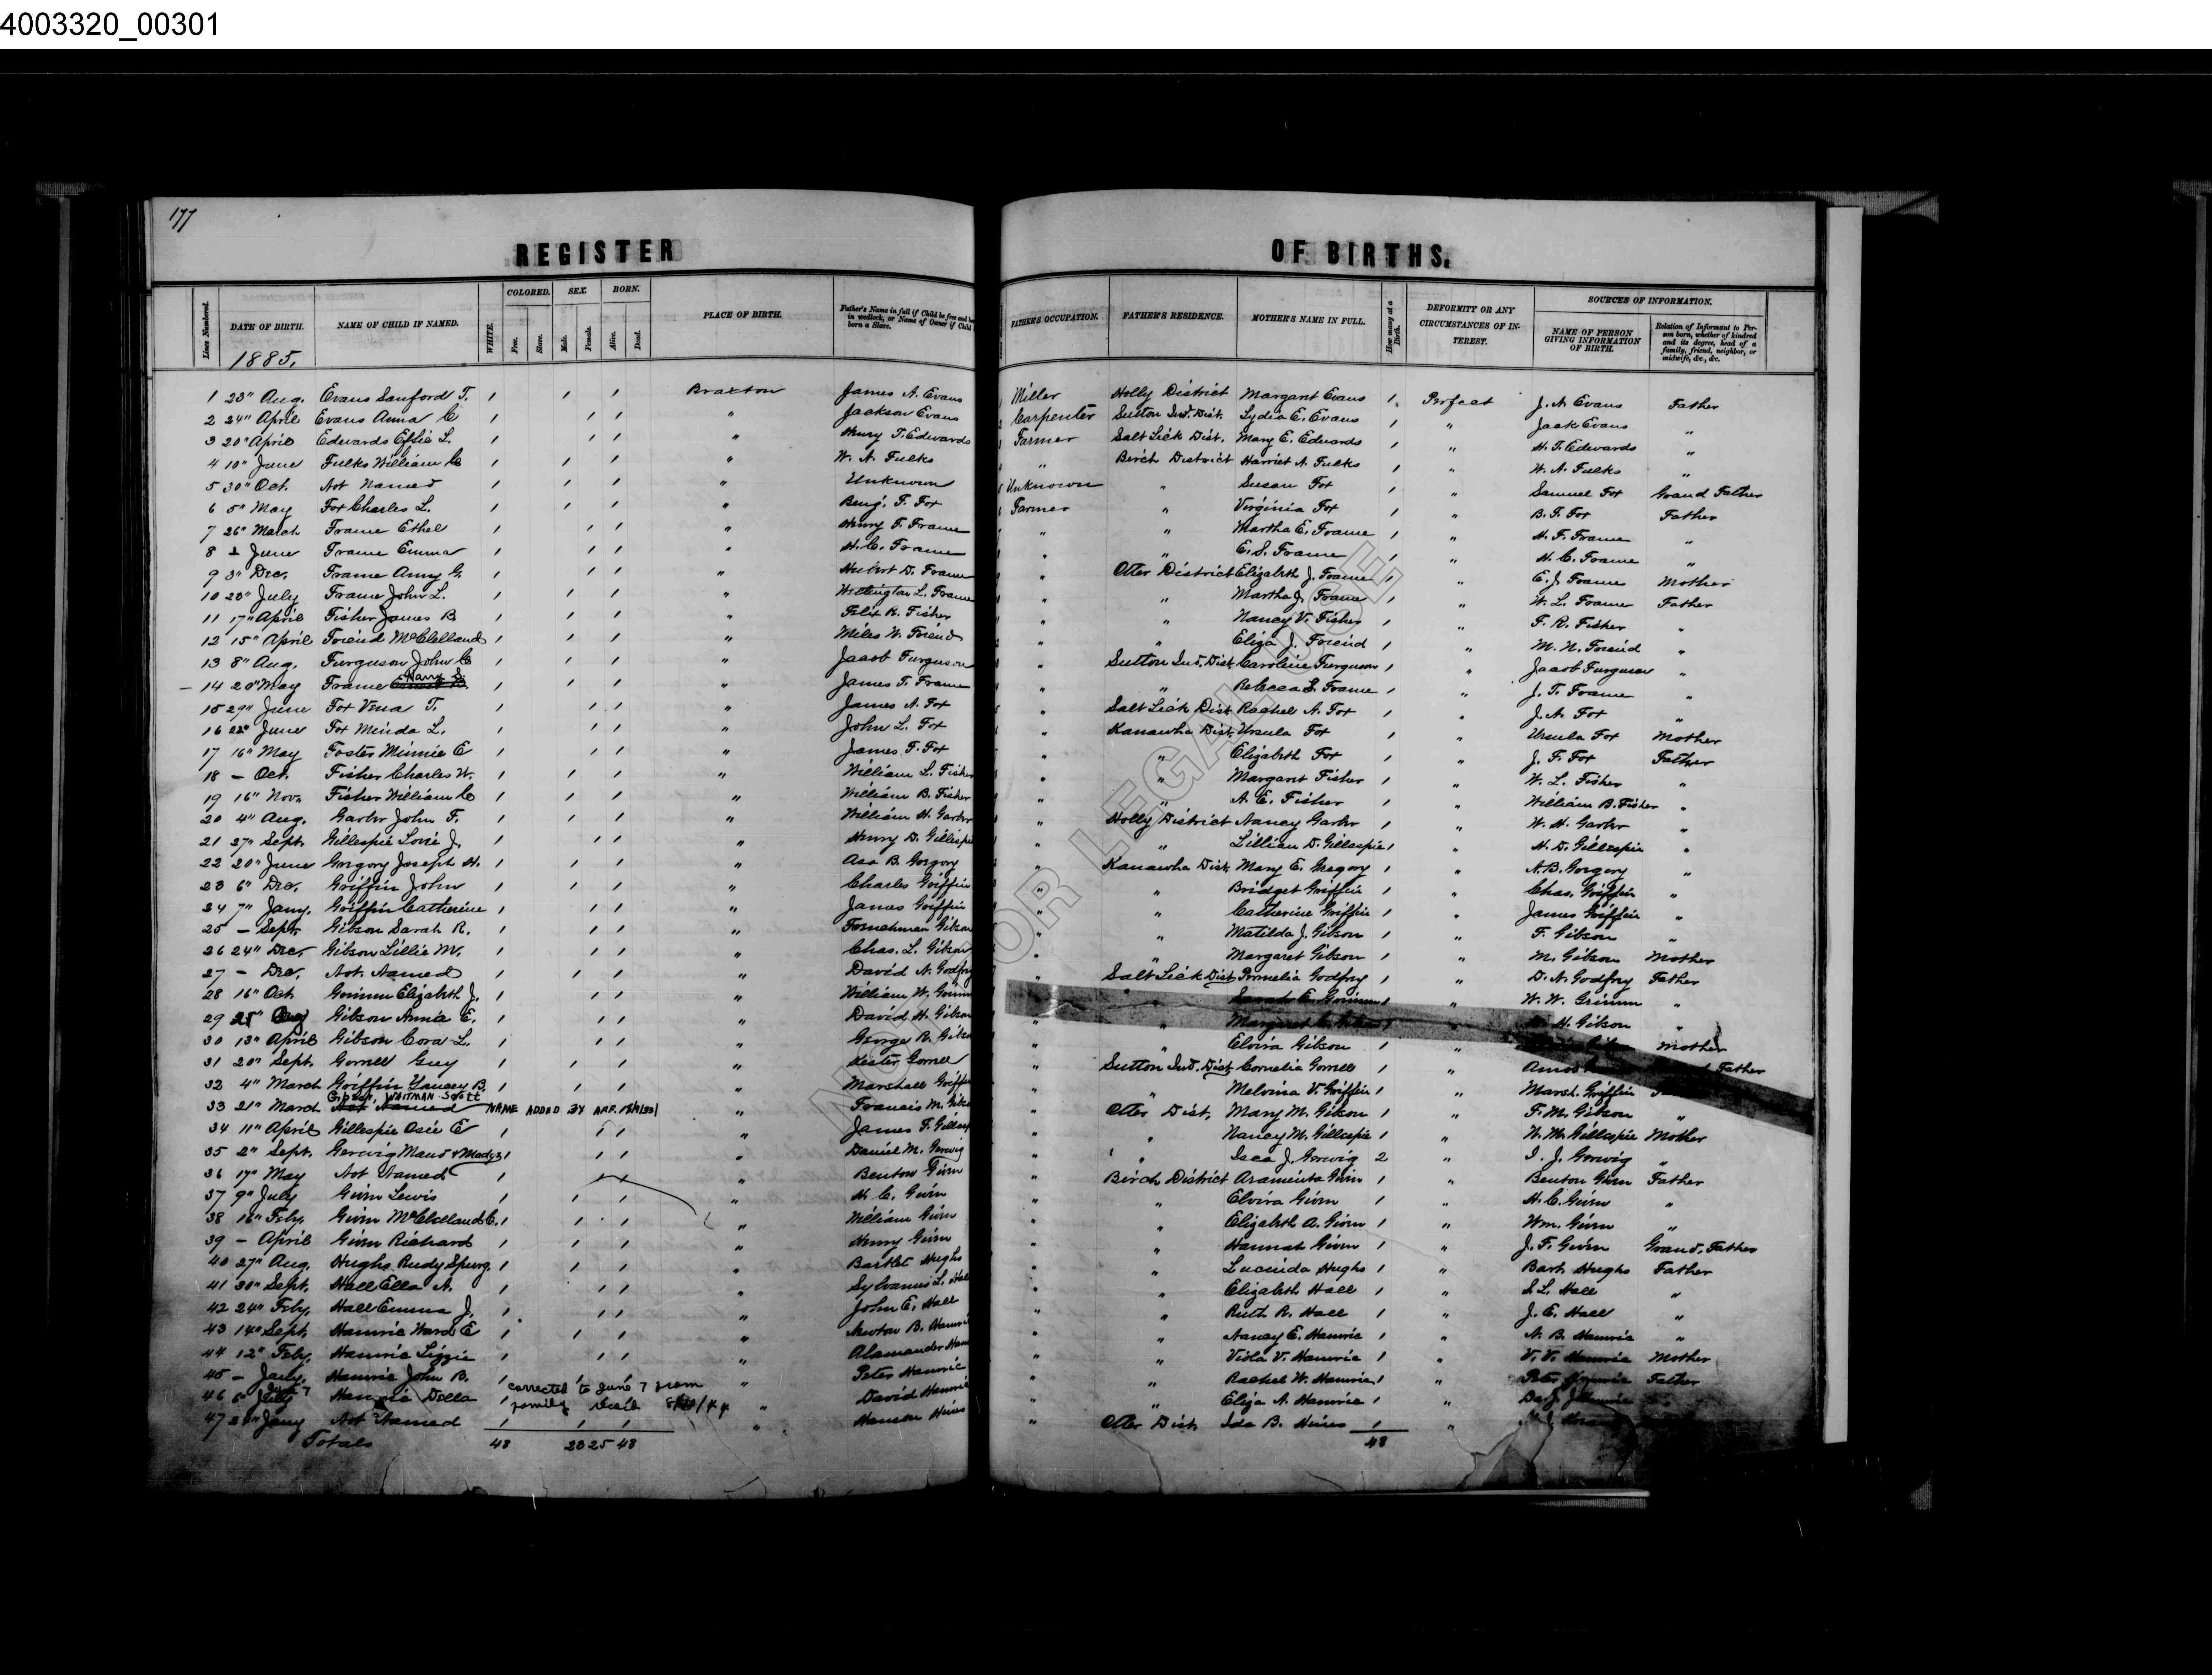 4003320_00301
177
REGISTER OF BIRTHS.
Lines Numbered. DATE OF BIRTH. NAME OF CHILD IF NAMED. WHITE. COLORED. Free. Slave. SEX. Male. Female. BORN. Alive. Dead. PLACE OF BIRTH. Father's Name in full if Child be free and born in wedlock, or Name of Owner if Child born a Slave. FATHER'S OCCUPATION. FATHER'S RESIDENCE. MOTHER'S NAME IN FULL. How many at a Birth. DEFORMITY OR ANY CIRCUMSTANCES OF INTEREST. SOURCES OF INFORMATION. NAME OF PERSON GIVING INFORMATION OF BIRTH. Relation of Informant to Person born, whether of kindred and its degree, head of a family, friend, neighbor, or midwife, &c., &c.
1885.
1 23" Aug. Evans Sanford T. 1 1 1 Braxton James A. Evans Miller Holly District Margaret Evans 1 Perfect J. A. Evans Father
2 24" April Evans Anna C 1 1 1 " Jackson Evans Carpenter Sutton Ind. Dist. Lydia E. Evans 1 " Jack Evans "
3 20" April Edwards Effie L. 1 1 1 " Henry T. Edwards Farmer Salt Lick Dist. Mary E. Edwards 1 " H. T. Edwards "
4 10" June Fulks William C 1 1 1 " W. A. Fulks " Birch District Harriet A. Fulks 1 " W. A. Fulks "
5 30" Oct. Not Named 1 1 1 " Unknown Unknown " Susan Fox 1 " Samuel Fox Grand Father
6 5" May Fox Charles L. 1 1 1 " Benj. F. Fox Farmer " Virginia Fox 1 " B. F. Fox Father
7 26" March Frame Ethel 1 1 1 " Henry F. Frame " " Martha E. Frame 1 " H. F. Frame "
8 June Frame Emma 1 1 1 " H. C. Frame " " E. S. Frame 1 " H. C. Frame "
9 3" Dec. Frame Anny G. 1 1 1 " D. Frame " Otter District Elizabeth J. Frame 1 " E. J. Frame Mother
10 20" July Frame John L. 1 1 1 " Wellington L. Frame " " Martha J. Frame 1 " W. L. Frame Father
11 17" April Fisher James B 1 1 1 " Felix R. Fisher " " Nancy V. Fisher 1 " F. R. Fisher "
12 15" April Friend McClelland 1 1 1 " Miles W. Friend " " Eliza J. Friend 1 " Friend "
13 8" Aug. Furguson John C 1 1 1 " Jacob Furguson " Sutton Ind. Dist. Caroline Furguson 1 " Jacob Furguson "
14 20" May Frame Harry S. 1 1 1 " James T. Frame " " Rebecca S. Frame 1 " J. T. Frame "
15 29" June Fox Vena T. 1 1 1 " James A. Fox " Salt Lick Dist Rachel A. Fox 1 " J. A. Fox "
16 22" June Fox Minda L. 1 1 1 " John L. Fox " Kanawha Dist. Ursula Fox 1 " Ursula Fox Mother
17 16" May Foster Minnie E 1 1 1 " James F. Fox " " Elizabeth Fox 1 " J. F. Fox Father
18 - Oct. Fisher Charles W. 1 1 1 " William L. Fisher " " Margaret Fisher 1 " W. L. Fisher "
19 16" Nov. Fisher William C 1 1 1 " William B. Fisher " " A. E. Fisher 1 " William B. Fisher "
20 4" Aug. Garber John F. 1 1 1 " William H. Garber " Holly District Nancy Garber 1 " W. H. Garber "
21 27" Sept. Gillespie Lovie J. 1 1 1 " Henry D. Gillespie " " Lillian D. Gillespie 1 " H. D. Gillespie "
22 20" June Gregory Joseph H. 1 1 1 " Asa B. Gregory " Kanawha Dist. Mary E. Gregory 1 " A. B. Gregory "
23 6" Dec. Griffin John 1 1 1 " Charles Griffin " " Bridget Griffin 1 " Chas. Griffin "
24 7" Jany. Griffin Catherine 1 1 1 " James Griffin " " Catherine Griffin 1 " James Griffin "
25 - Sept. Gibson Sarah R. 1 1 1 " Gibson " " Matilda J. Gibson 1 " F. Gibson "
26 24" Dec. Gibson Lillie M. 1 1 1 " Chas. L. Gibson " " Margaret Gibson 1 " M. Gibson Mother
27 - Dec. Not Named 1 1 1 " David N. Godfrey " Salt Lick Dist Permelia Godfrey 1 " D. N. Godfrey Father
28 16" Oct. Grimm Elizabeth J. 1 1 1 " William W. Grimm " " Sarah E. Grimm 1 " W. W. Grimm "
29 25" Aug Gibson Annie E. 1 1 1 " David H. Gibson " " Margaret 1 " H. Gibson "
30 13" April Gibson Cora L. 1 1 1 " George R. Gibson " " Elvira Gibson 1 " Mother
31 20" Sept. Gorrell Guy 1 1 1 " Gorrell " Sutton Ind. Dist Cornelia Gorrell 1 " Amos Father
32 4" March Griffin Yancey B. 1 1 1 " Marshall Griffin " " Melvina V. Griffin 1 " Marsh. Griffin
33 21" March Gibson, WAITMAN Scott Not Named NAME ADDED BY AFF. " Francis M. Gibson " Otter Dist. Mary M. Gibson 1 " F. M. Gibson "
34 11" April Gillespie Osie E 1 1 1 " James F. Gillespie " " Nancy M. Gillespie 1 " N. M. Gillespie Mother
35 2" Sept. Gerwig Maud & Madge 1 1 1 " Daniel M. Gerwig " " Isca J. Gerwig 2 " I. J. Gerwig "
36 17" May Not Named 1 1 1 " Benton Givin " Birch District Araminta Givin 1 " Benton Givin Father
37 9" July Givin Lewis 1 1 1 " H. C. Givin " " Elvira Givin 1 " H. C. Givin "
38 16" Feby. Givin McClelland C. 1 1 1 " William Givin " " Elizabeth A. Givin 1 " Wm. Givin "
39 - April Givin Richard 1 1 1 " Henry Givin " " Hannah Givin 1 " J. F. Givin Grand, Father
40 27" Aug. Hughs Rudy Spurg. 1 1 1 " Bartlet Hughs " " Lucinda Hughs 1 " Bart. Hughs Father
41 30" Sept. Hall Ella A. 1 1 1 " Sylvanus L. Hall " " Elizabeth Hall 1 " S. L. Hall "
42 24" Feby. Hall Emma J. 1 1 1 " John E. Hall " " Ruth R. Hall 1 " J. E. Hall "
43 14" Sept. Hamric Ward E 1 1 1 " Newton B. Hamric " " Nancy E. Hamric 1 " N. B. Hamric "
44 12" Feby. Hamric Lizzie 1 1 1 " Alamander Ham " " Viola V. Hamric 1 " V. V. Hamric Mother
45 - Jany. Hamric John B. 1 1 1 " Peter Hamric " " Rachel W. Hamric 1 " Hamric Father
46 6" July June 7 Hamric Della 1 corrected to June 7 from family " David Hamric " " Eliza A. Hamric 1 "
47 Jany Not Named 1 1 1 " Hanson Hines " Otter Dist. Ida B. Hines 1 "
Totals 48 23 25 48 48
NOT FOR LEGAL USE